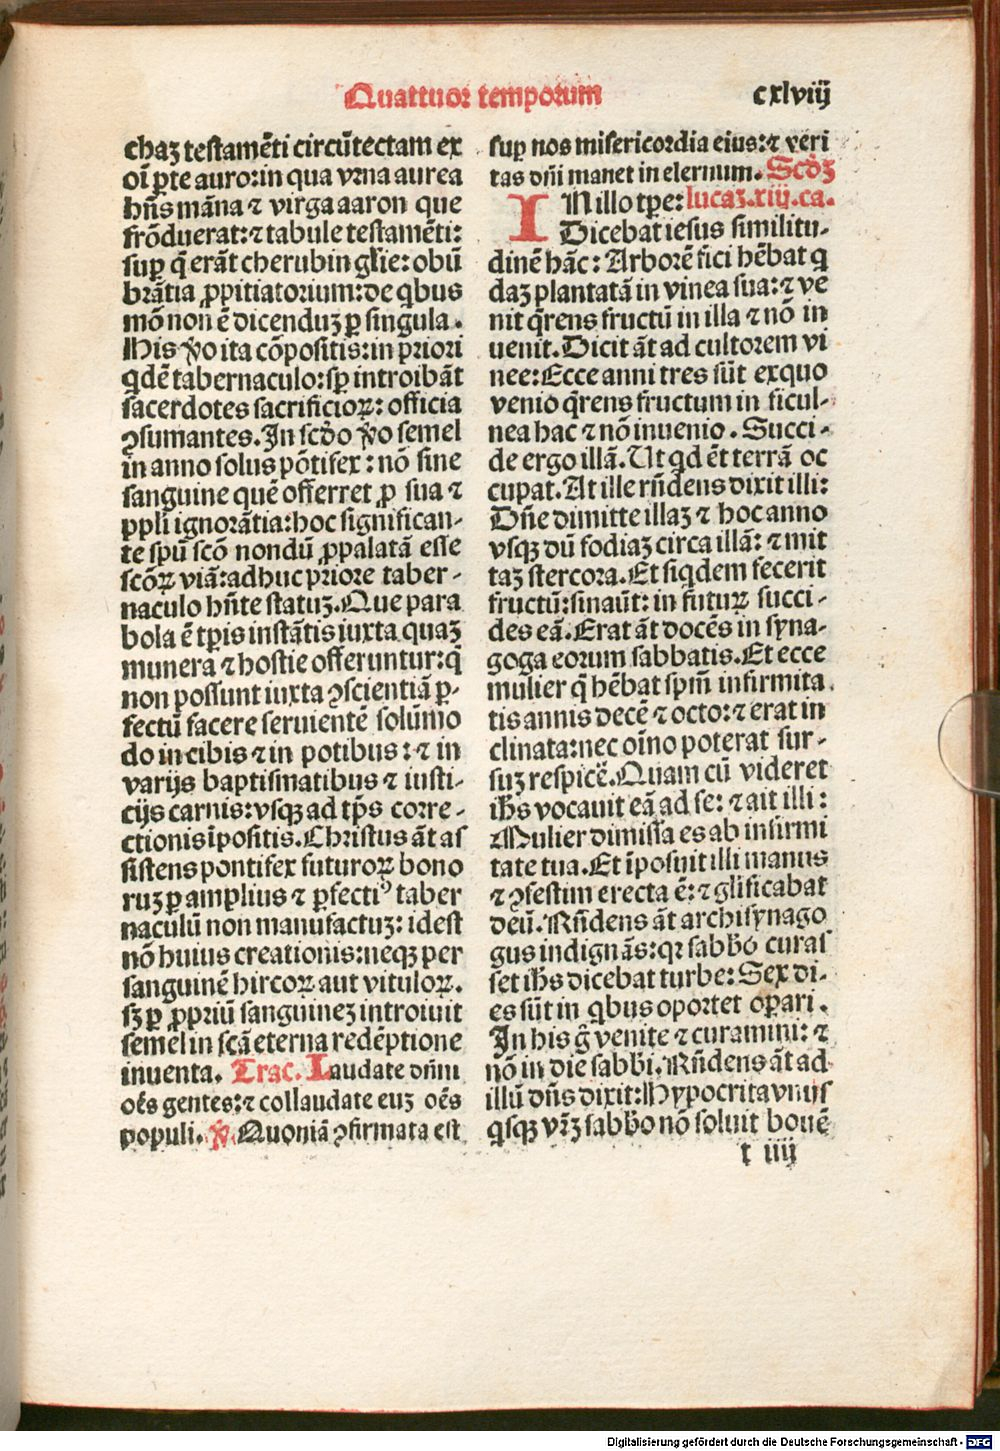 Quattuor temporum
cxlviij
chaꝫ testamēti circūtectam ex
oī ꝑte auro:in qua vrna aurea
hn̄s māna ⁊ virga aaron que
frōduerat:⁊ tabule testamēti:
suꝑ q̄ erāt cherubin gl̄ie: obū
brātia ꝓpitiatorium:de qͥbus
mō non ē dicenduꝫ ꝑ singula.
His ꝟo ita cōpositis:in priori
qͥdē tabernaculo:sꝑ introibāt
sacerdotes sacrificioꝝ: officia
ꝯsumantes.In scd̄o ꝟo semel
in anno solus pōtifex: nō sine
sanguine quē offerret ꝓ sua ⁊
pp̄li ignorātia:hoc significan-
te spū scō nondū ꝓpalatā esse
scōꝝ viā:adhuc priore taber-
naculo hn̄te statuꝫ.Que para
bola ē tp̄is instātis iuxta quaꝫ
munera ⁊ hostie offeruntur:q̄
non possunt iuxta ꝯscientiā ꝑ-
fectū facere seruientē solūmo
do in cibis ⁊ in potibus: ⁊ in
varijs baptismatibus ⁊ iusti-
cijs carnis:vsqꝫ ad tp̄s corre-
ctionis īpositis.Christus āt as
sistens pontifex futuroꝝ bono
ruꝫ ꝑ amplius ⁊ ꝑfectiꝰ taber
naculū non manufactuꝫ: idest
nō huius creationis:neqꝫ per
sanguinē hircoꝝ aut vituloꝝ.
sꝫ ꝑ ꝓpriū sanguineꝫ introiuit
semel in scā eterna redēptione
inuenta. Trac. Laudate dn̄m
oēs gentes:⁊ collaudate euꝫ oēs
populi. ꝟ. Quoniā ꝯfirmata est
suꝑ nos misericordia eius:⁊ veri
tas dn̄i manet in eternum. Scd̄ꝫ
IN illo tꝑe: lucaꝫ.xiij.ca.
Dicebat iesus similitu-
dinē hāc: Arborē fici hēbat q
daꝫ plantatā in vinea sua:⁊ ve
nit q̄rens fructū in illa ⁊ nō in
uenit.Dicit āt ad cultorem vi
nee:Ecce anni tres sūt exquo
venio q̄rens fructum in ficul-
nea hac ⁊ nō inuenio. Succi-
de ergo illā.Ut qͥd ēt terrā oc
cupat.At ille rn̄dens dixit illi:
Dn̄e dimitte illaꝫ ⁊ hoc anno
vsqꝫ dū fodiaꝫ circa illā: ⁊ mit
taꝫ stercora.Et siqͥdem fecerit
fructū:sinaūt: in futurꝝ succi-
des eā.Erat āt docēs in syna-
goga eorum sabbatis.Et ecce
mulier q̄ hēbat spm̄ infirmita
tis annis decē ⁊ octo:⁊ erat in
clinata:nec oīno poterat sur-
suꝫ respicē.Quam cū videret
ih̄s vocauit eā ad se: ⁊ ait illi:
Mulier dimissa es ab infirmi
tate tua.Et īposuit illi manus
⁊ ꝯfestim erecta ē:⁊ gl̄ificabat
deū.Rn̄dens āt archisynago
gus indignās:qꝛ sabb̄o curas
set ih̄s dicebat turbe: Sex di-
es sūt in qͥbus oportet oꝑari.
In his g̊ venite ⁊ curamini: ⁊
nō in die sabb̄i.Rn̄dens āt ad
illū dn̄s dixit:Hypocrita vnus
qͥsqꝫ vr̄ꝫ sabb̄o nō soluit bouē
t iiij
Digitalisierung gefördert durch die Deutsche Forschungsgemeinschaft - DFG